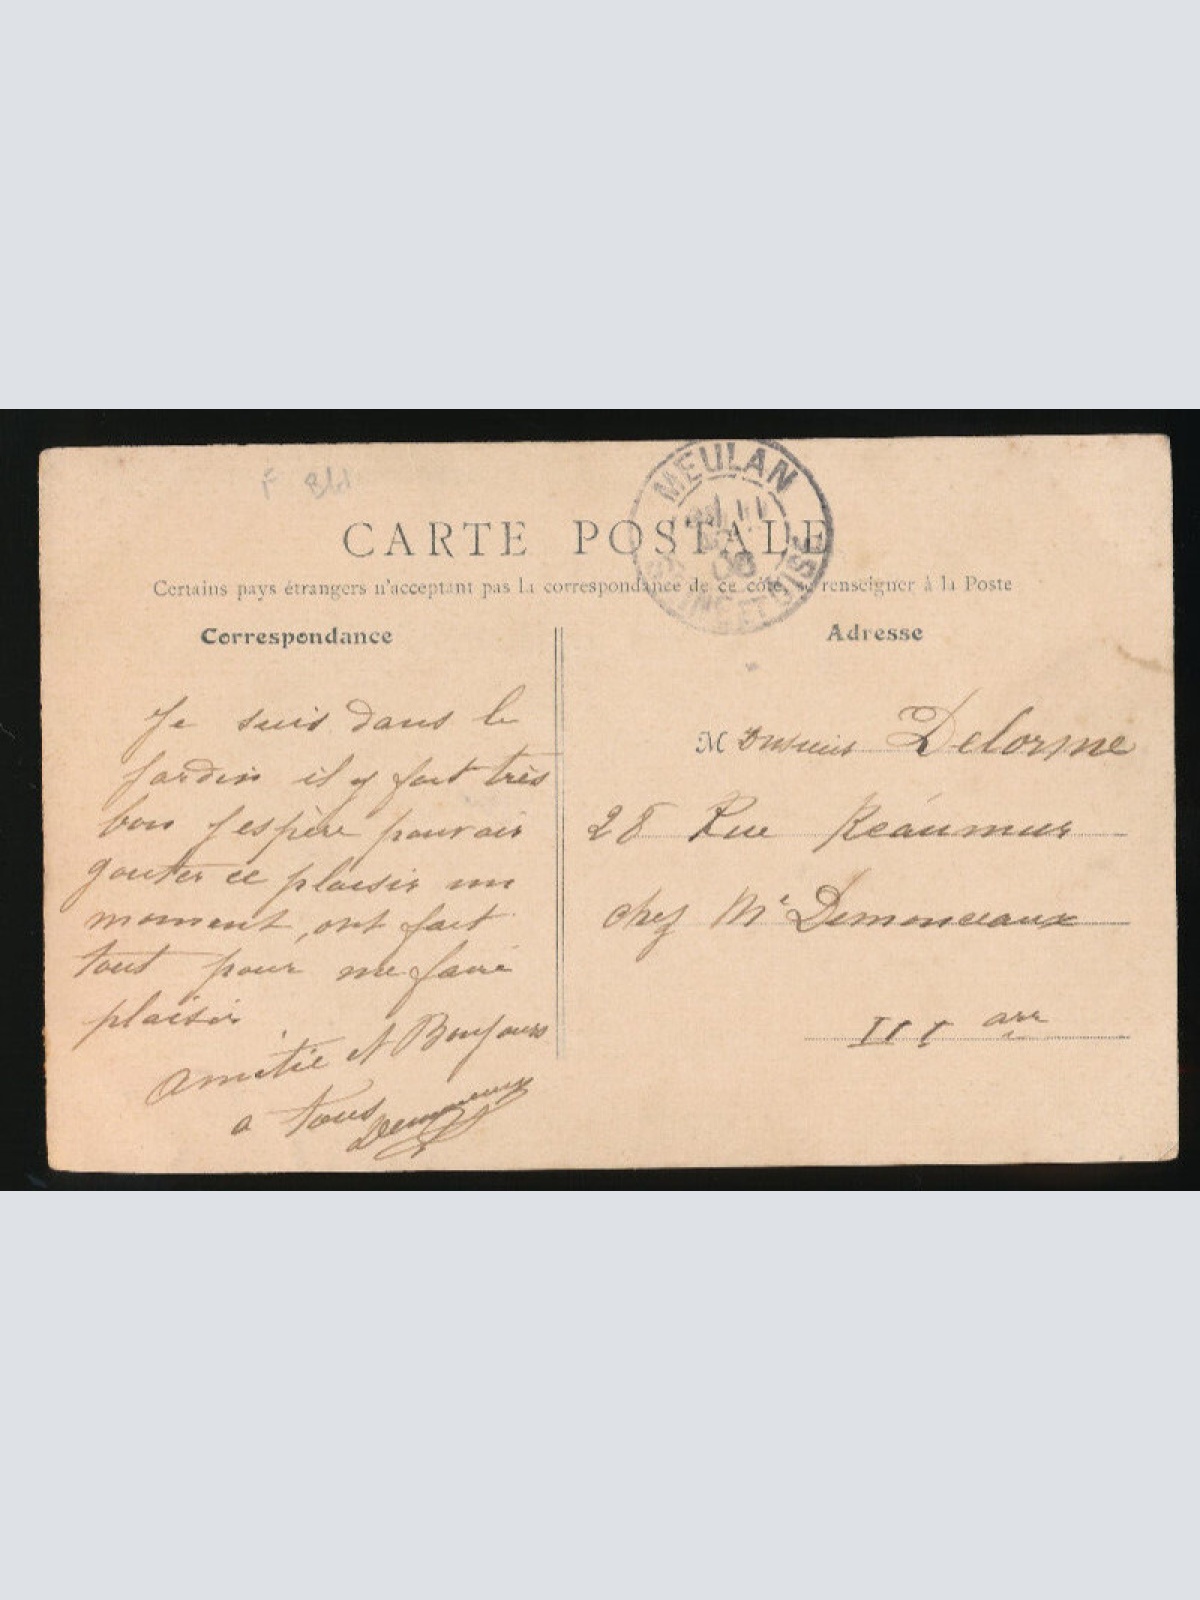 MEULAN
SEINE ET OISE
CARTE POSTALE
Certains pays étrangers n'acceptant pas la correspondance de ce côté, se renseigner à la Poste
Correspondance
Je suis dans le
Jardin il y fait très
bon J'espère pouvoir
gouter ce plaisir un
moment, ont fait
tout pour me faire
plaisir
Amitié et Bonjours
a Tous
Adresse
Monsieur Delorme
28 Rue Réaumur
chez Mr Demonceaux
III arr